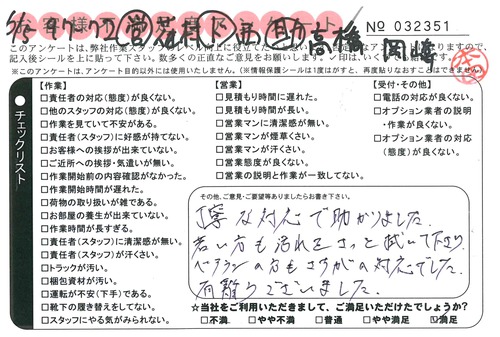 高橋 岡崎
No 032351
このアンケートは、弊社作業スタッフのレベル向上に役立てたい
記入後シールを上に貼って下さい。数多くの正直なご意見をお願いします。✓印は、いくつでも
※このアンケートは、アンケート目的以外には使用いたしません。(※情報保護シールは1度はがすと、再度貼りなおすことはできません)
チェックリスト
【作業】
□責任者の対応(態度)が良くない。
□他のスタッフの対応(態度)が良くない。
□作業を見ていて不安がある。
□責任者(スタッフ)に好感が持てない。
□お客様への挨拶が出来ていない。
□ご近所への挨拶・気遣いが無い。
□作業開始前の内容確認がなかった。
□作業開始時間が遅れた。
□荷物の取り扱いが雑である。
□お部屋の養生が出来ていない。
□作業時間が長すぎる。
□責任者(スタッフ)に清潔感が無い。
□責任者(スタッフ)が汗くさい。
□トラックが汚い。
□梱包資材が汚い。
□運転が不安(下手)である。
□靴下の履き替えをしてない。
□スタッフにやる気がみられない。
【営業】
□見積もり時間に遅れた。
□見積もり時間が長い。
□営業マンに清潔感が無い。
□営業マンが煙草くさい。
□営業マンが汗くさい。
□営業態度が良くない。
□営業の説明と作業が一致してない。
【受付・その他】
□電話の対応が良くない。
□オプション業者の説明
・作業が良くない。
□オプション業者の対応
(態度)が良くない。
その他、ご意見・ご要望等ありましたらお書き下さい。
丁寧な対応で助かりました。
若い方も汚れをさっと拭いて下さり
ベテランの方もさすがの対応でした。
有難うございました。
☆当社をご利用いただきまして、ご満足いただけたでしょうか?
□不満 □やや不満 □普通 □やや満足 ☑満足